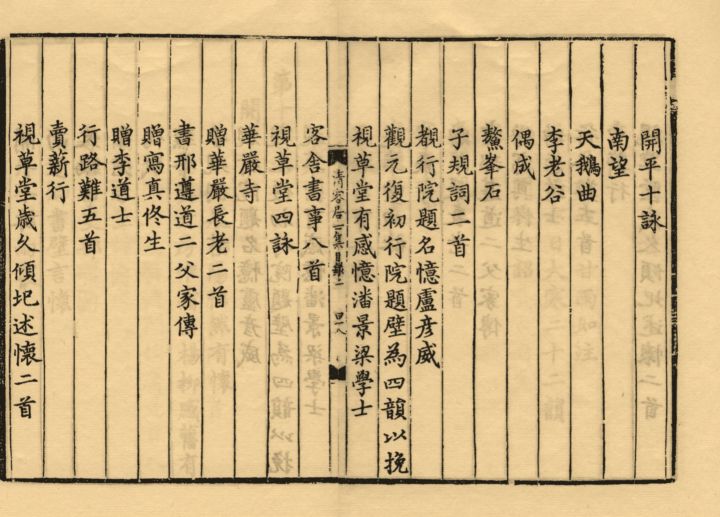 開平十詠
南望
天鵝曲
李老谷
偶成
鰲峯石
子規詞二首
覩行院題名憶盧彦威
觀元復初行院題壁為四韻以挽
視草堂有感憶潘景梁學士
清容居士集目錄二
客舍書事八首
視草堂四詠
華嚴寺
贈華嚴長老二首
書邢遵道二父家傳
贈寫真佟生
贈李道士
行路難五首
賣薪行
視草堂歲久傾圯述懷二首